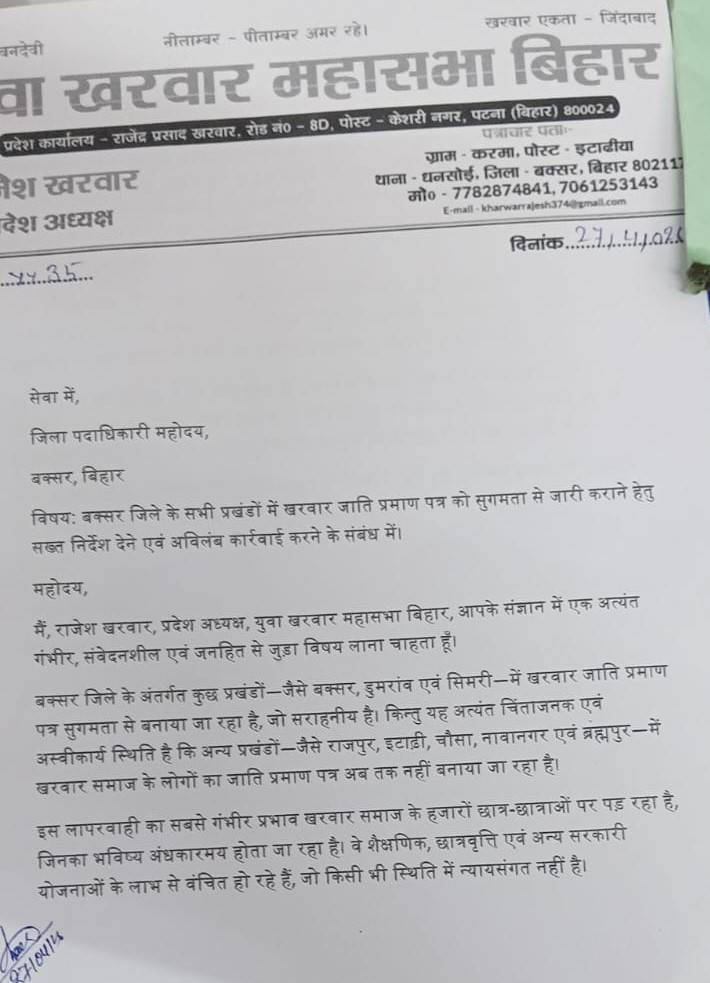 वनदेवी
नीलाम्बर - पीताम्बर अमर रहे।
खरवार एकता - जिंदाबाद
वा खरवार महासभा बिहार
प्रदेश कार्यालय - राजेंद्र प्रसाद खरवार, रोड नं० - 8D, पोस्ट - केशरी नगर, पटना (बिहार) 800024
पत्राचार पताः-
ग्राम - करमा, पोस्ट - इटाढीया
थाना - धनसोई, जिला - बक्सर, बिहार 802117
मो० - 7782874841, 7061253143
E-mail - kharwarrajesh374@gmail.com
जेश खरवार
देश अध्यक्ष
दिनांक
35
सेवा में,
जिला पदाधिकारी महोदय,
बक्सर, बिहार
विषय: बक्सर जिले के सभी प्रखंडों में खरवार जाति प्रमाण पत्र को सुगमता से जारी कराने हेतु
सख्त निर्देश देने एवं अविलंब कार्रवाई करने के संबंध में।
महोदय,
मैं, राजेश खरवार, प्रदेश अध्यक्ष, युवा खरवार महासभा बिहार, आपके संज्ञान में एक अत्यंत
गंभीर, संवेदनशील एवं जनहित से जुड़ा विषय लाना चाहता हूँ।
बक्सर जिले के अंतर्गत कुछ प्रखंडों—जैसे बक्सर, डुमरांव एवं सिमरी—में खरवार जाति प्रमाण
पत्र सुगमता से बनाया जा रहा है, जो सराहनीय है। किन्तु यह अत्यंत चिंताजनक एवं
अस्वीकार्य स्थिति है कि अन्य प्रखंडों—जैसे राजपुर, इटाढ़ी, चौसा, नावानगर एवं ब्रह्मपुर—में
खरवार समाज के लोगों का जाति प्रमाण पत्र अब तक नहीं बनाया जा रहा है।
इस लापरवाही का सबसे गंभीर प्रभाव खरवार समाज के हजारों छात्र-छात्राओं पर पड़ रहा है,
जिनका भविष्य अंधकारमय होता जा रहा है। वे शैक्षणिक, छात्रवृत्ति एवं अन्य सरकारी
योजनाओं के लाभ से वंचित हो रहे हैं, जो किसी भी स्थिति में न्यायसंगत नहीं है।